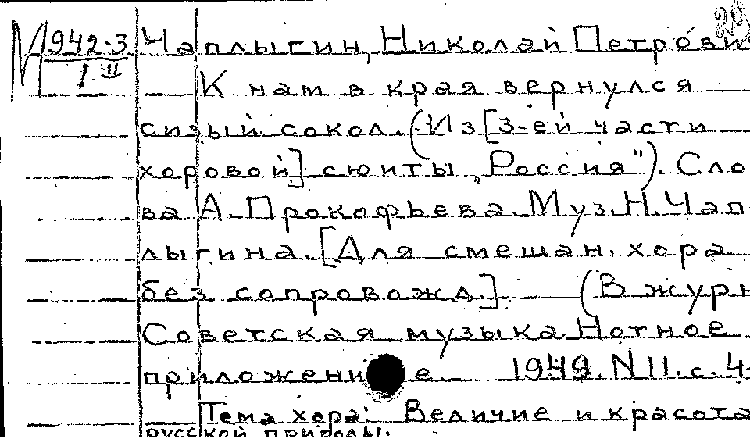 М 942-3 Чаплыгин, Николай Петрови
I II К нам в края вернулся
сизый сокол. (Из [3-ей части
хоровой] сюиты „Россия"). Сло
ва А. Прокофьева. Муз. Н. Чап-
лыгина. [Для смешан. хора
без сопровожд.] (В журн
Советская музыка. Нотное
приложение 1949. N 11. с. 4-
Тема хора: Величие и красота
русской природы.